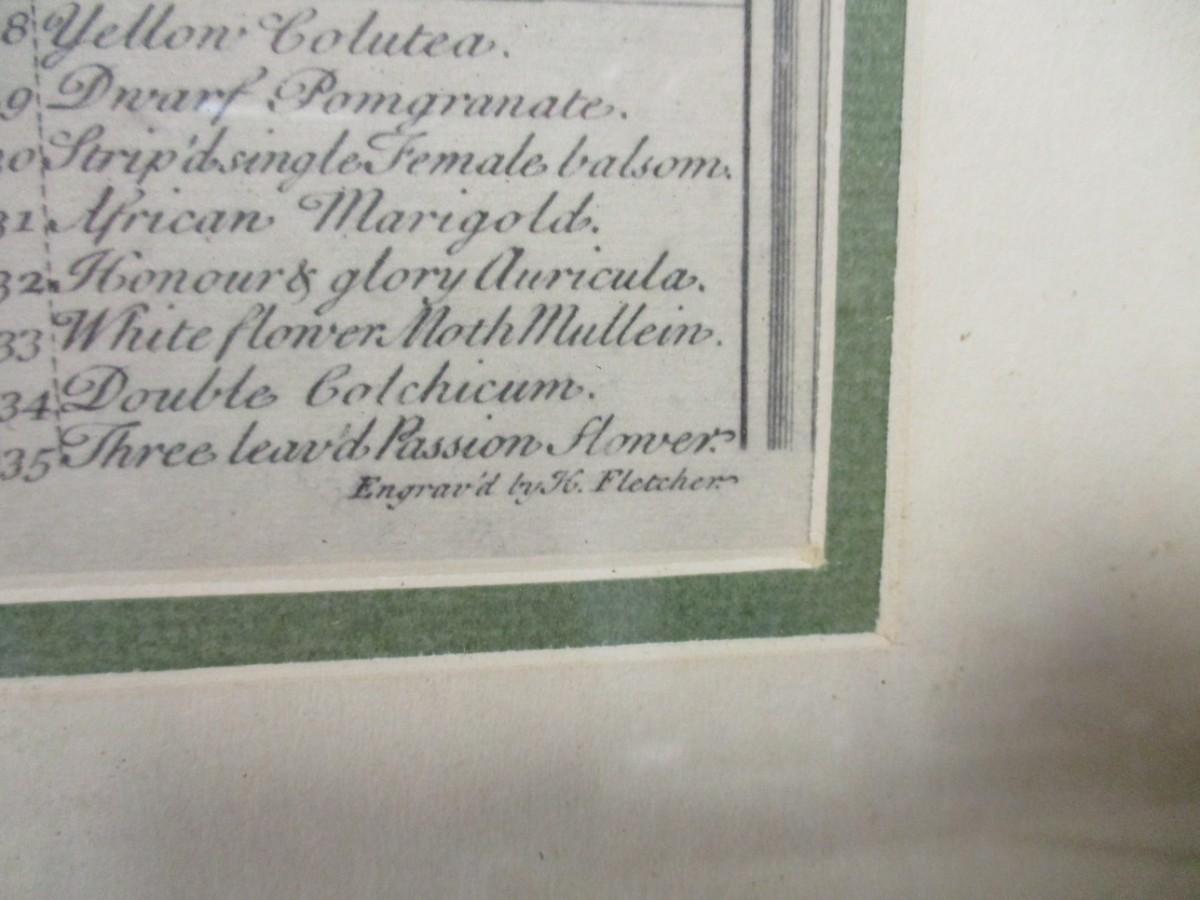 8 Yellow Colutea.
9 Dwarf Pomgranate.
30 Strip'd single Female balsom.
31 African Marigold.
32 Honour & glory Auricula.
33 White flower Moth Mullein.
34 Double Colchicum.
35 Three leav'd Passion flower.
Engrav'd by H. Fletcher.